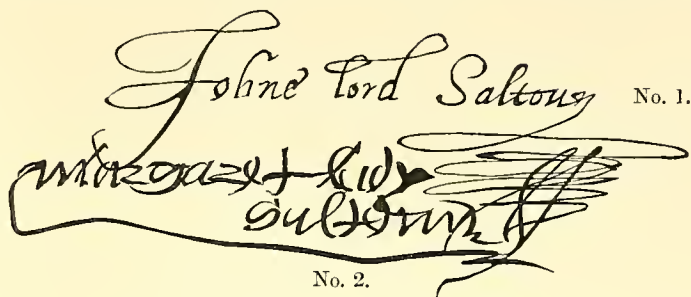 Johne lord Saltoun No. 1.
margaret Lady
Saltoun
No. 2.